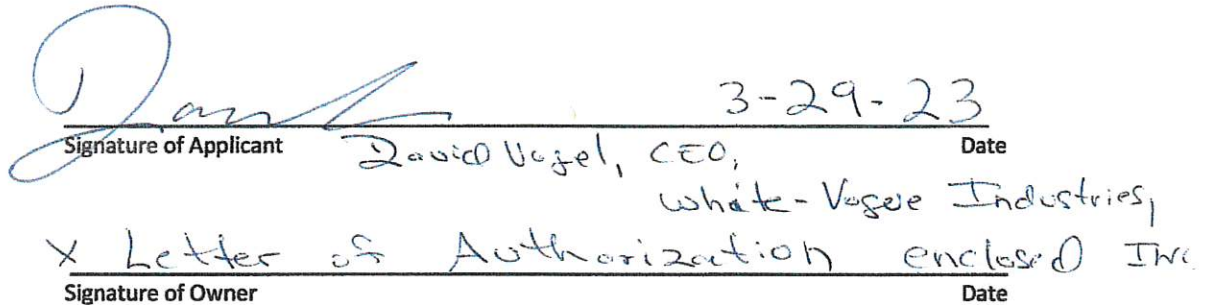 3-29-23
Signature of Applicant Date
David Vogel, CEO,
White-Vogel Industries,
X Letter of Authorization enclosed Inc.
Signature of Owner Date